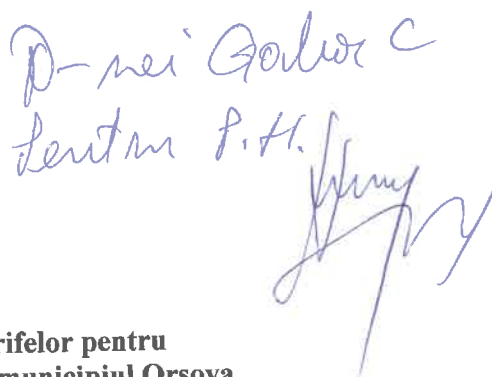 D-nei C
Pentru P.H.
rifelor pentru
municipiul Orșova